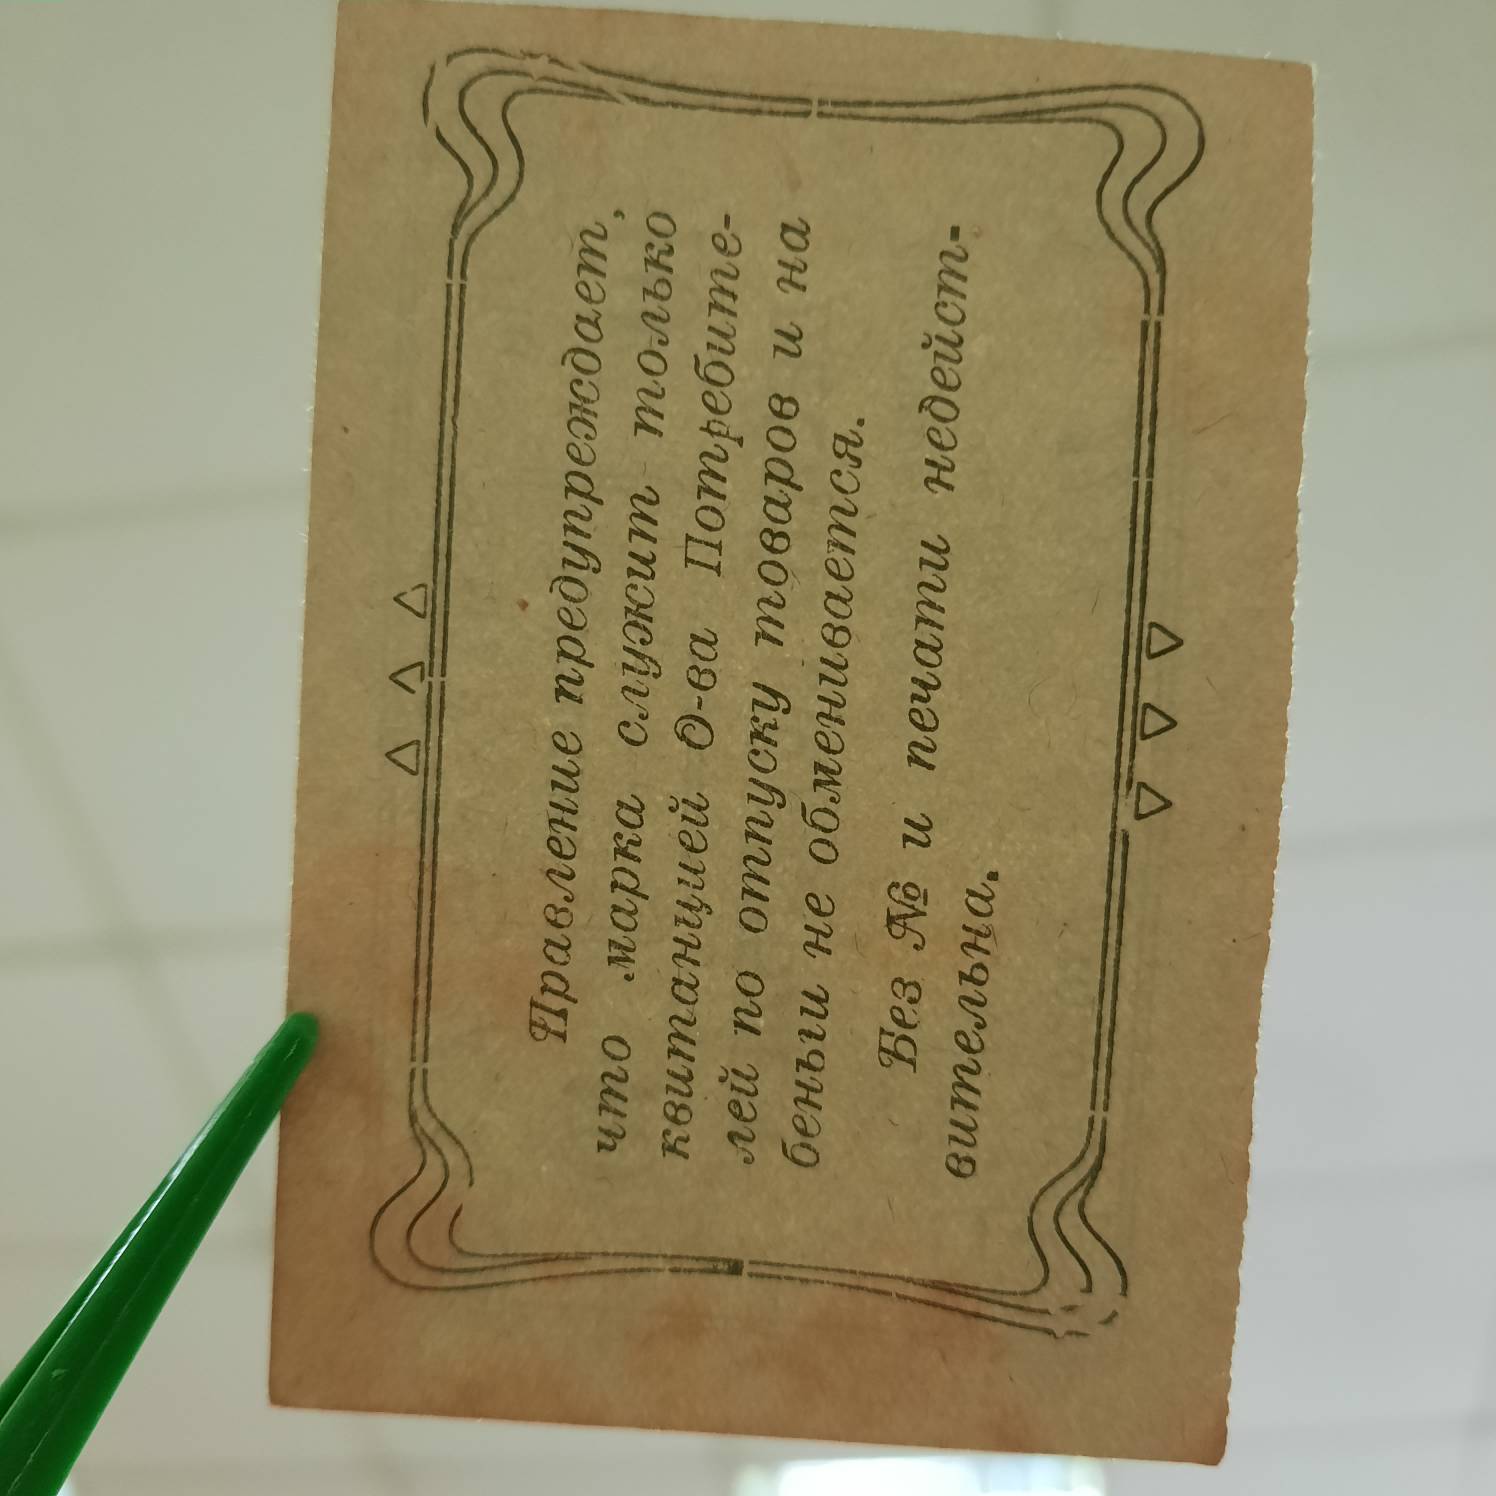 Правление предупреждает,
что марка служит только
квитанцией О-ва Потребите-
лей по отпуску товаров и на
беньги не обменивается.
Без № и печати недейст-
вительна.